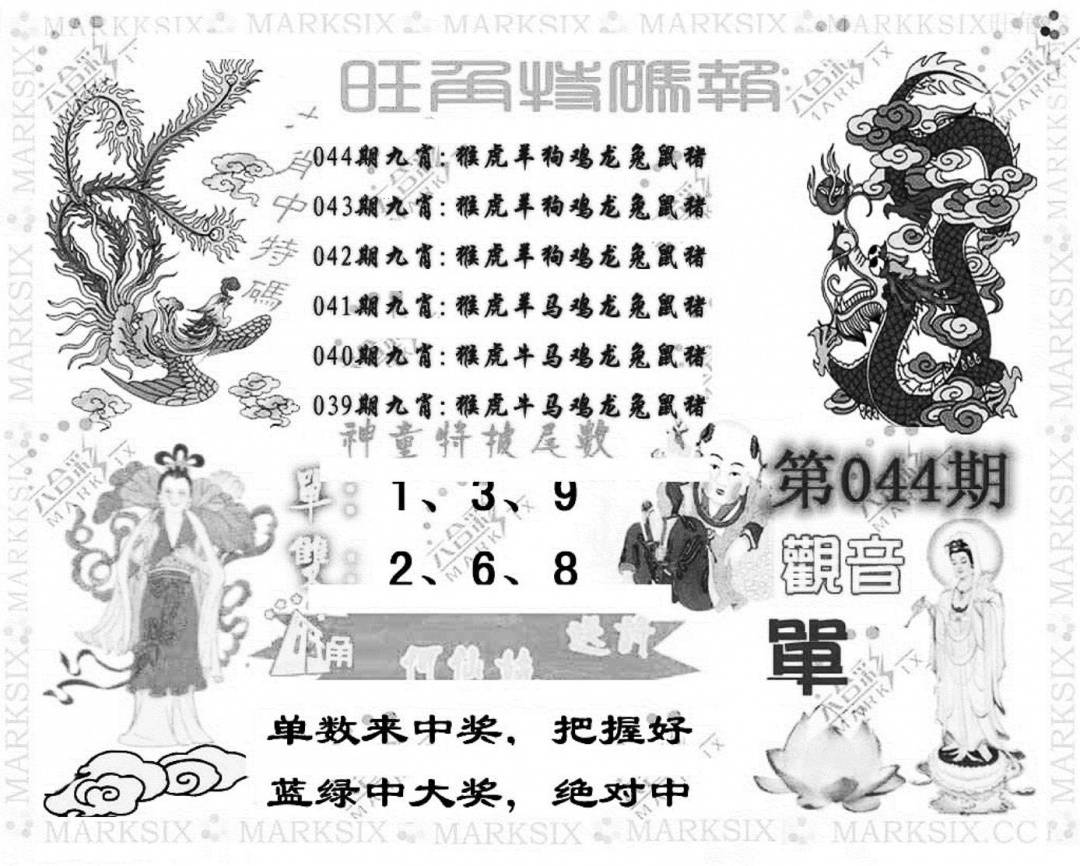 MARKSIX MARKSIX MARKSIX MARKSIX MARKKSIX
旺角特碼報
角中特碼
044期九宵:猴虎羊狗鸡龙兔鼠猪
043期九宵:猴虎羊狗鸡龙兔鼠猪
042期九宵:猴虎羊狗鸡龙兔鼠猪
041期九宵:猴虎羊马鸡龙兔鼠猪
040期九宵:猴虎牛马鸡龙兔鼠猪
039期九宵:猴虎牛马鸡龙兔鼠猪
神童特披尾數
單:1、3、9
雙:2、6、8
第044期
觀音
單
何仙姑
单数来中奖，把握好
蓝绿中大奖，绝对中
MARKSIX MARKSIX MARKSIX MARKSIX MARKSIX.CC